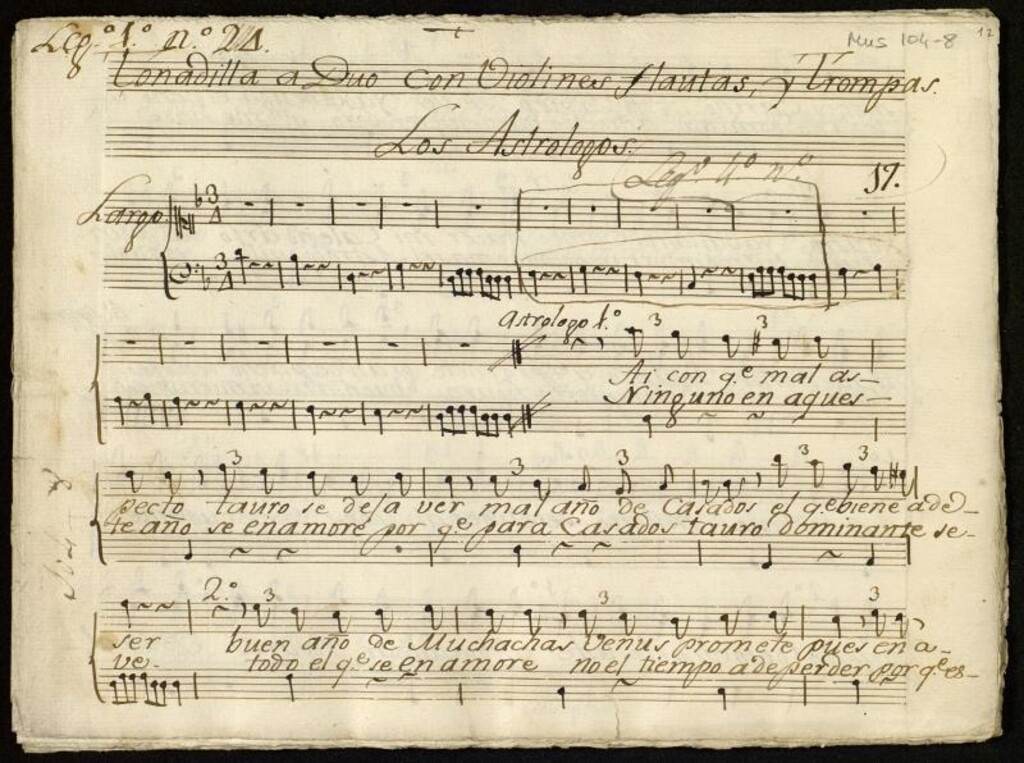 Leg.º 1.º n.º 24.
Mus 104-8
12
Tonadilla a Duo con Violines, flautas, y Trompas.
Los Astrologos.
Leg.º 4.º n.º 17.
Largo.
Astrologo 1.º
Ai con q.e mal as-
Ninguno en aques-
pecto tauro se deja ver mal año de Casados el q.e biene a de-
te año se enamore por q.e para Casados tauro dominante se-
2.º
ser buen año de Muchachas Venus promete pues en a-
ve. todo el q.e se enamore no el tiempo a de perder por q.e es-